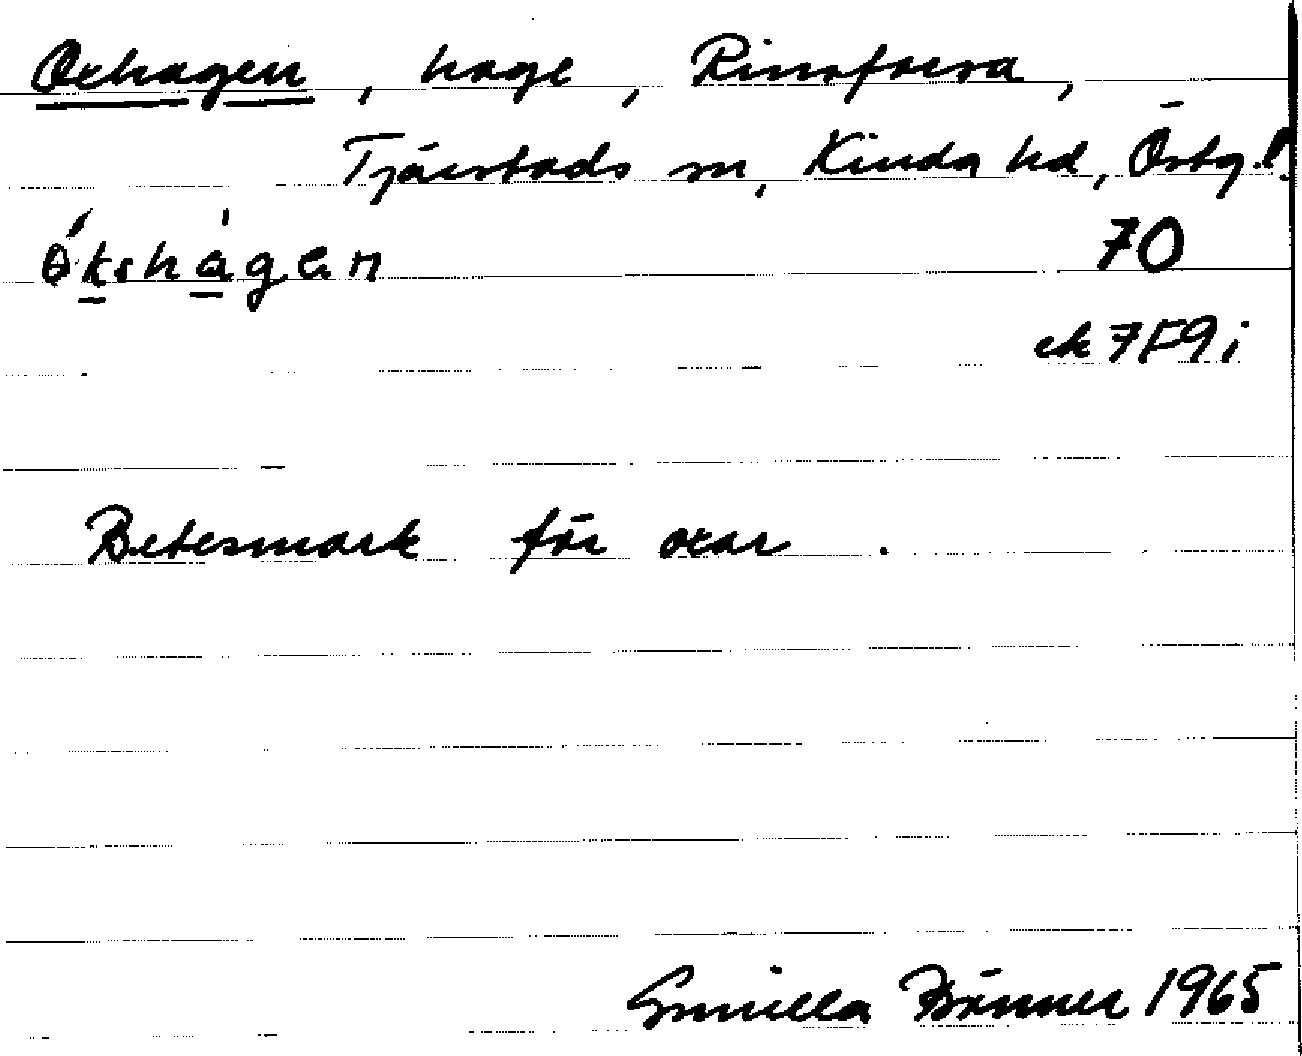 Oxhagen, hage, Rimsforsa,
Tjärstads sn, Kinda hd, Östg.
ókshàgen
70
ek 7F9i
Betesmark för oxar.
Gunilla 1965